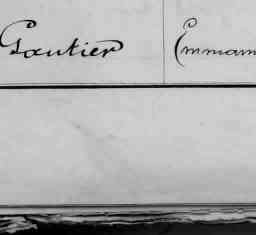 Gautier Emmam